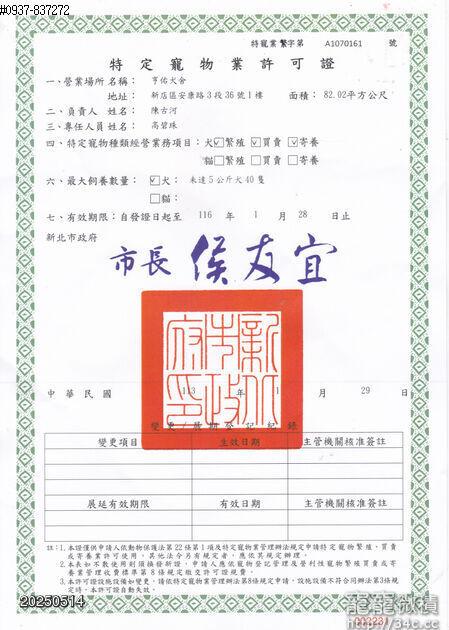 #0937-837272
特寵業繁字第 A1070161 號
特定寵物業許可證
一、營業場所名稱： 亨佑犬舍
地址： 新店區安康路3段36號1樓 面積： 82.02平方公尺
二、負責人姓名： 陳古河
三、專任人員姓名： 高碧珠
四、特定寵物種類經營業務項目： 犬☑繁殖 ☑買賣 ☑寄養
貓□繁殖 □買賣 □寄養
六、最大飼養數量： ☑犬： 未達5公斤犬40隻
□貓：
七、有效期限：自發證日起至 116 年 1 月 28 日止
新北市政府
市長 侯友宜
新北市政府印
中華民國 113 年 1 月 29 日
變更／展期登記紀錄
變更項目 生效日期 主管機關核准簽註
展延有效期限 有效日期 主管機關核准簽註
註：1.本證僅供申請人依動物保護法第22條第1項及特定寵物業管理辦法規定申請特定寵物繁殖、買賣
或寄養業許可使用，其他法令另有規定者，應依其規定辦理。
2.本表如不敷使用則須換發新證，申請人應依寵物登記管理及營利性寵物繁殖買賣或寄養
業管理收費標準第8條規定繳交許可證規費。
3.本許可證設施設備如變更，請依特定寵物業管理辦法第8條規定申請，設施設備不符合同辦法第3條規
定時，本許可證自動失效。
20250514
002231
龍龍微積
http://34c.cc